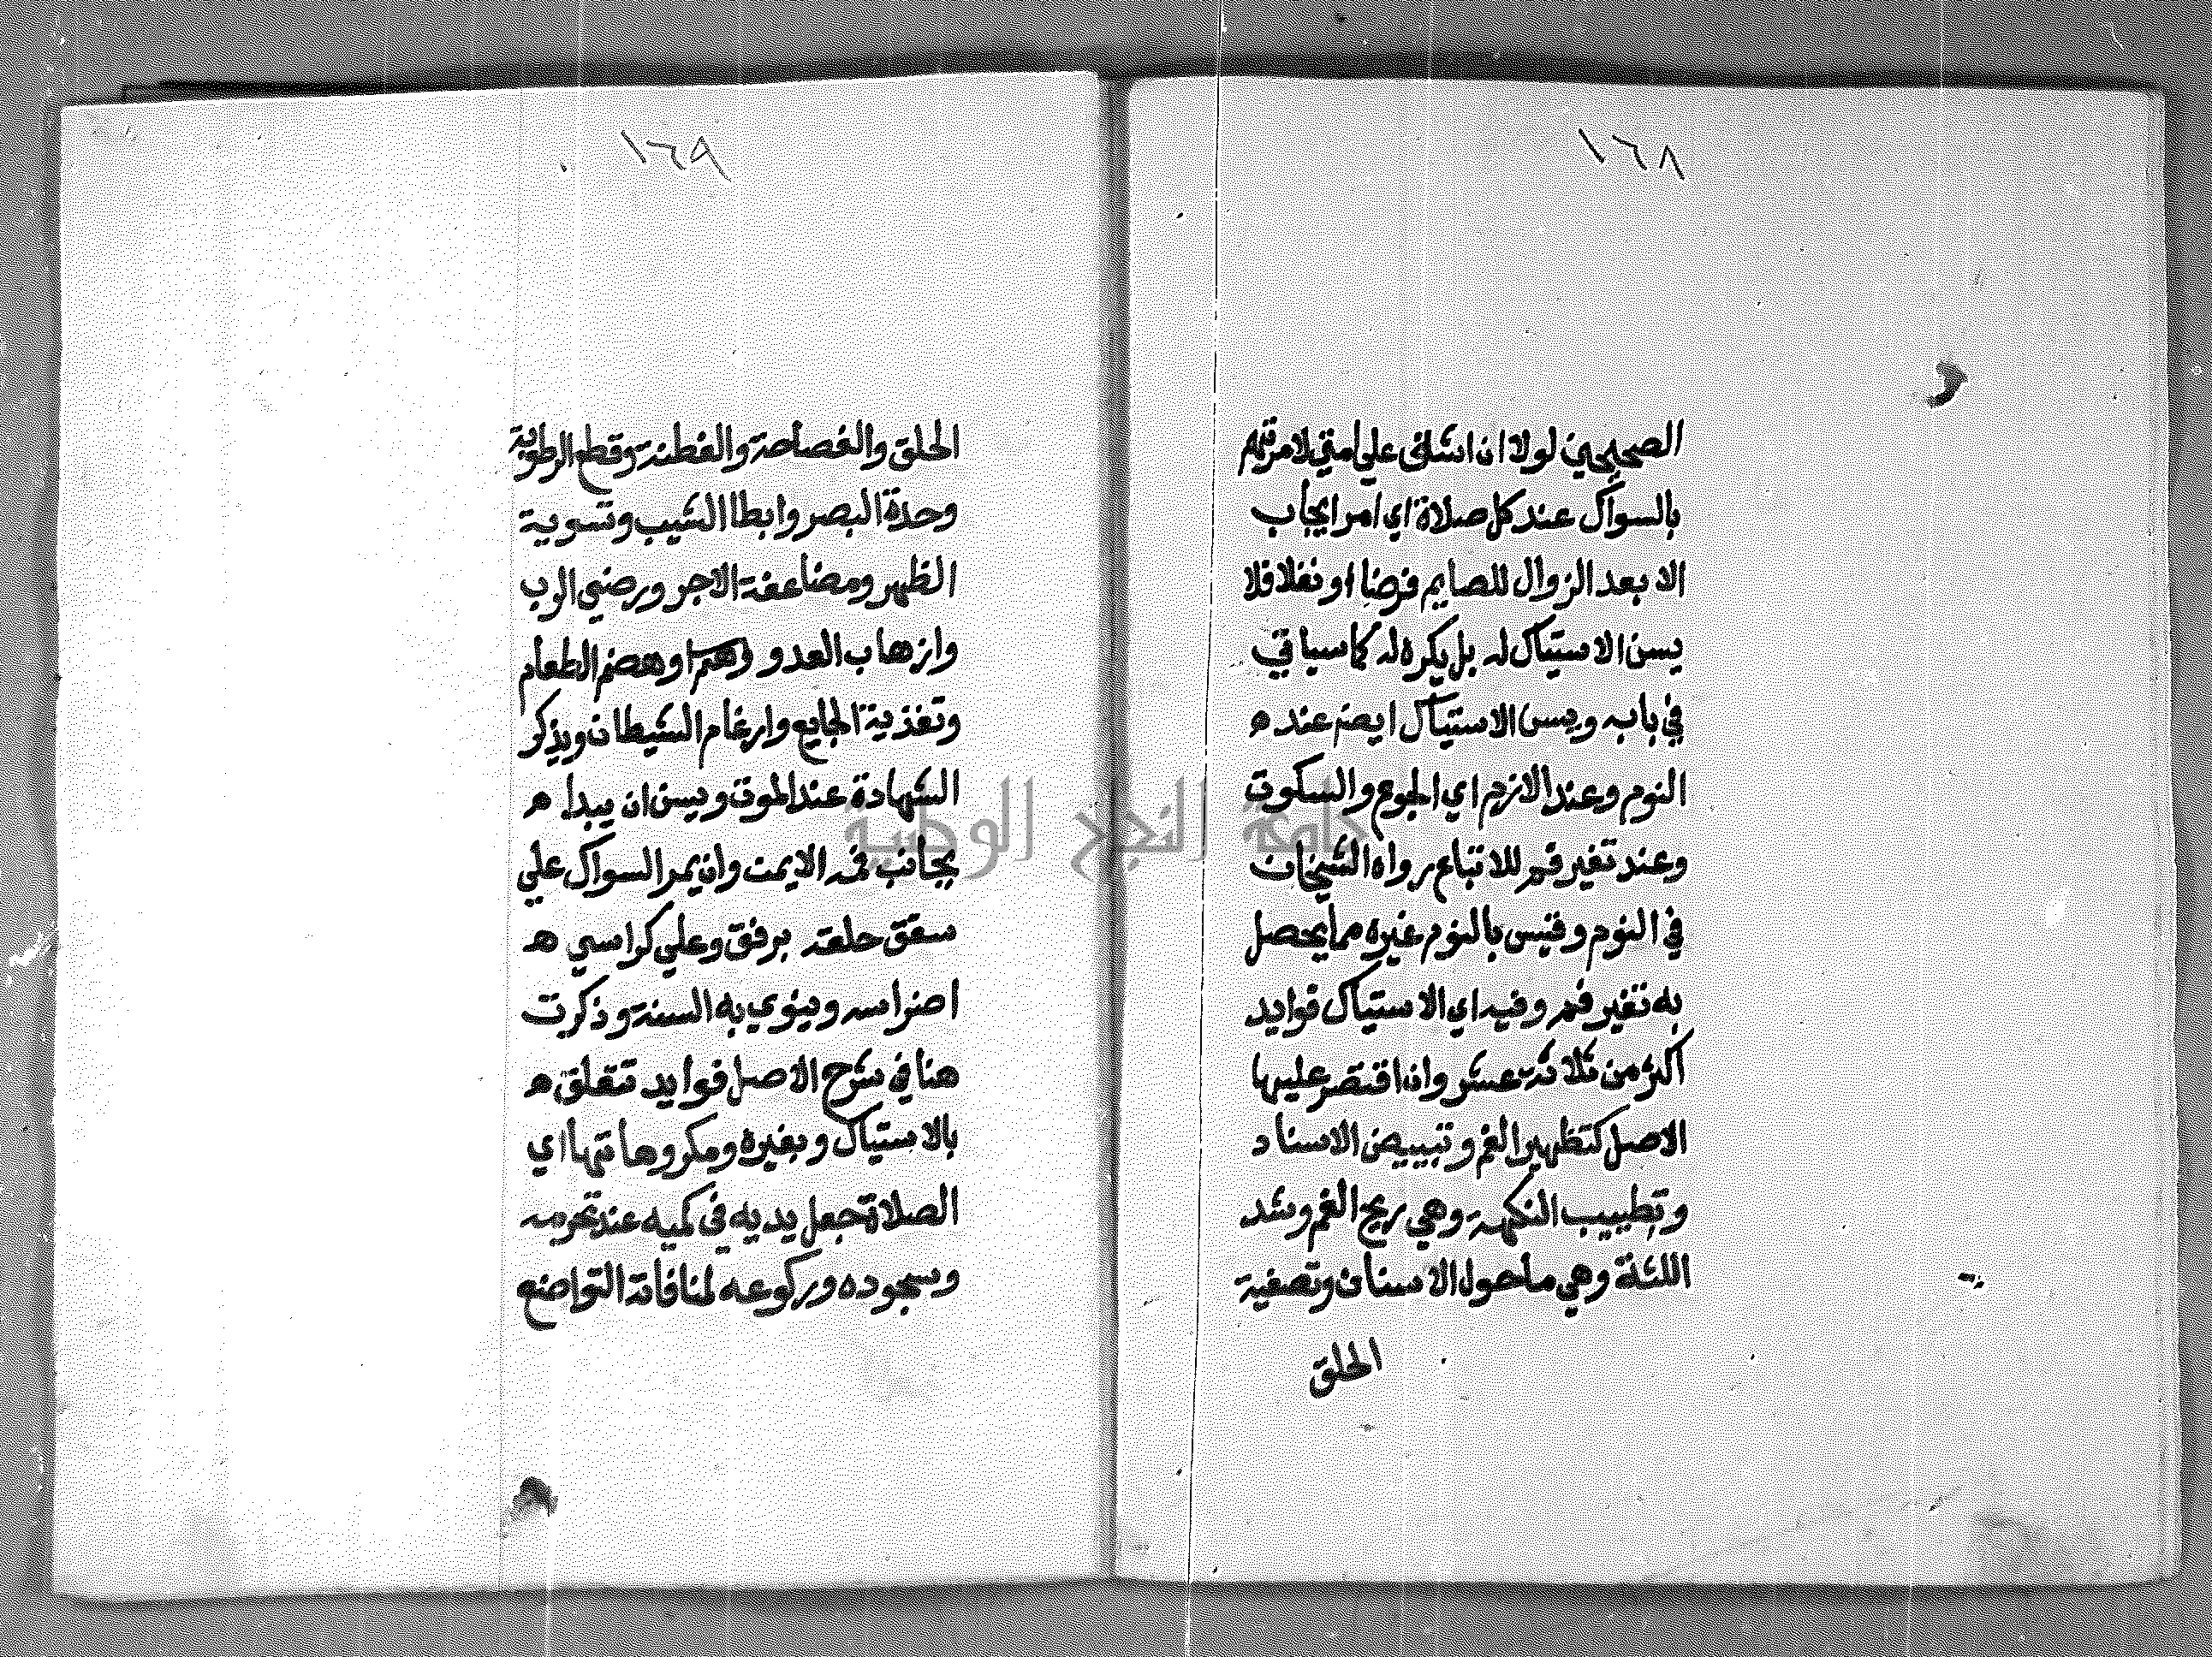 ١٦٨
الصحيحين لولا ان اشق على امتي لامرتهم
بالسواك عند كل صلاة اي امر ايجاب
الا بعد الزوال للصايم فرضا او نفلا فلا
يسن الاستياك له بل يكره له كما سياتي
في بابه ويسن الاستياك ايضا عند ه
النوم وعند الازم اي الجوع والسكوت
وعند تغير فم للاتباع رواه الشيخان
في النوم وقيس بالنوم غيره مما يحصل
به تغير فم وفيه اي الاستياك فوايد
اكثر من ثلاثة عشر وان اقتصر عليها
الاصل كتظهير الفم وتبييض الاسنا د
وتطبيب النكهة وهي ريح الفم وشد
اللثة وهي ما حول الاسنان وتصفية
الحلق
١٦٩
الحلق والفصاحة والفطنة وقطع الرطوبة
وحدة البصر وابطا الشيب وتسوية
الظهر ومضاعفة الاجر ورضي الرب
وازهاب العدو وهضم الطعام
وتغذية الجايع وارغام الشيطان ويذكر
الشهادة عند الموت ويسن ان يبدا ه
بجانب فمه الايمن وان يمر السواك علي
سقف حلقه برفق وعلي كراسي ه
اضراسه وينوي به السنة وذكرت
هنا في شرح الاصل فوايد تتعلق ه
بالاستياك وبغيره ومكروهاتها اي
الصلاة جعل يديه في كميه عند تحرمه
وسجوده وركوعه لمنافاته التواضع
جامعة النجاح الوطنية